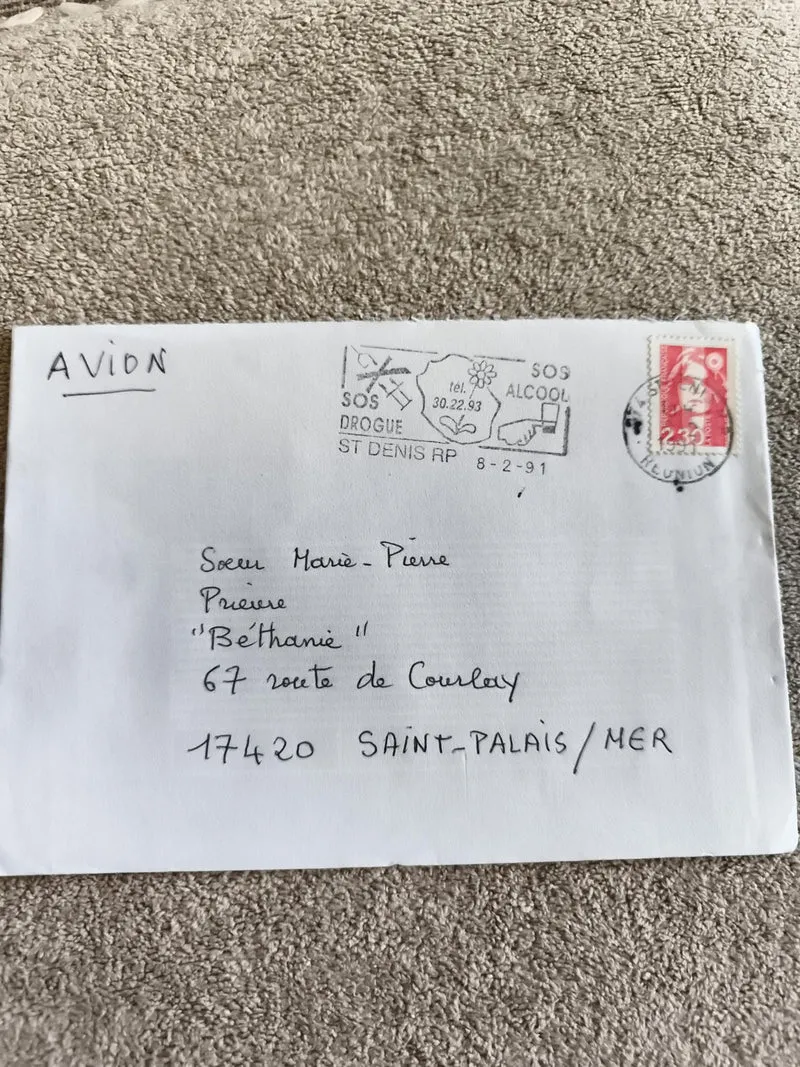 AVION
SOS
DROGUE
tél.
30.22.93
SOS
ALCOOL
ST DENIS RP 8-2-91
2,30
1991
REUNION
Soeur Marie-Pierre
Prieure
"Béthanie"
67 route de Courlay
17420 SAINT-PALAIS/MER